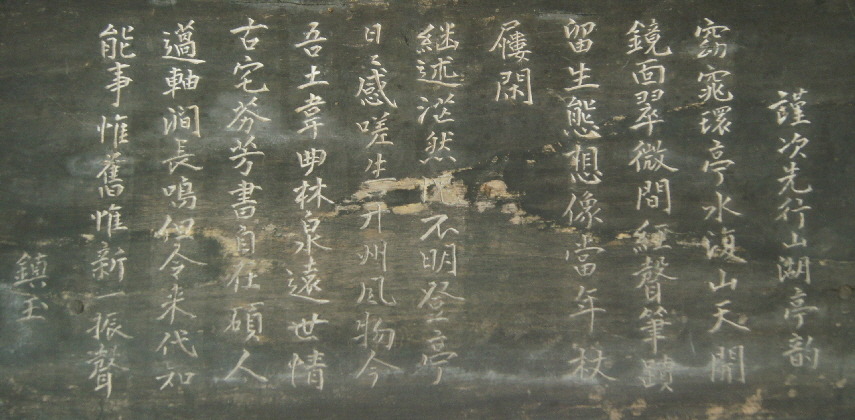 謹次先行山湖亭韵
窈窕環亭水復山天開
鏡面翠微間經聲筆蹟
留生態想像當年杖
屨閑
継述茫然代不明登亭
日〻感嗟生并州風物今
吾土韋曲林泉遠世情
古宅芬芳書自在碩人
薖軸澗長鳴但令来代知
能事惟舊惟新一振聲
鎮玉